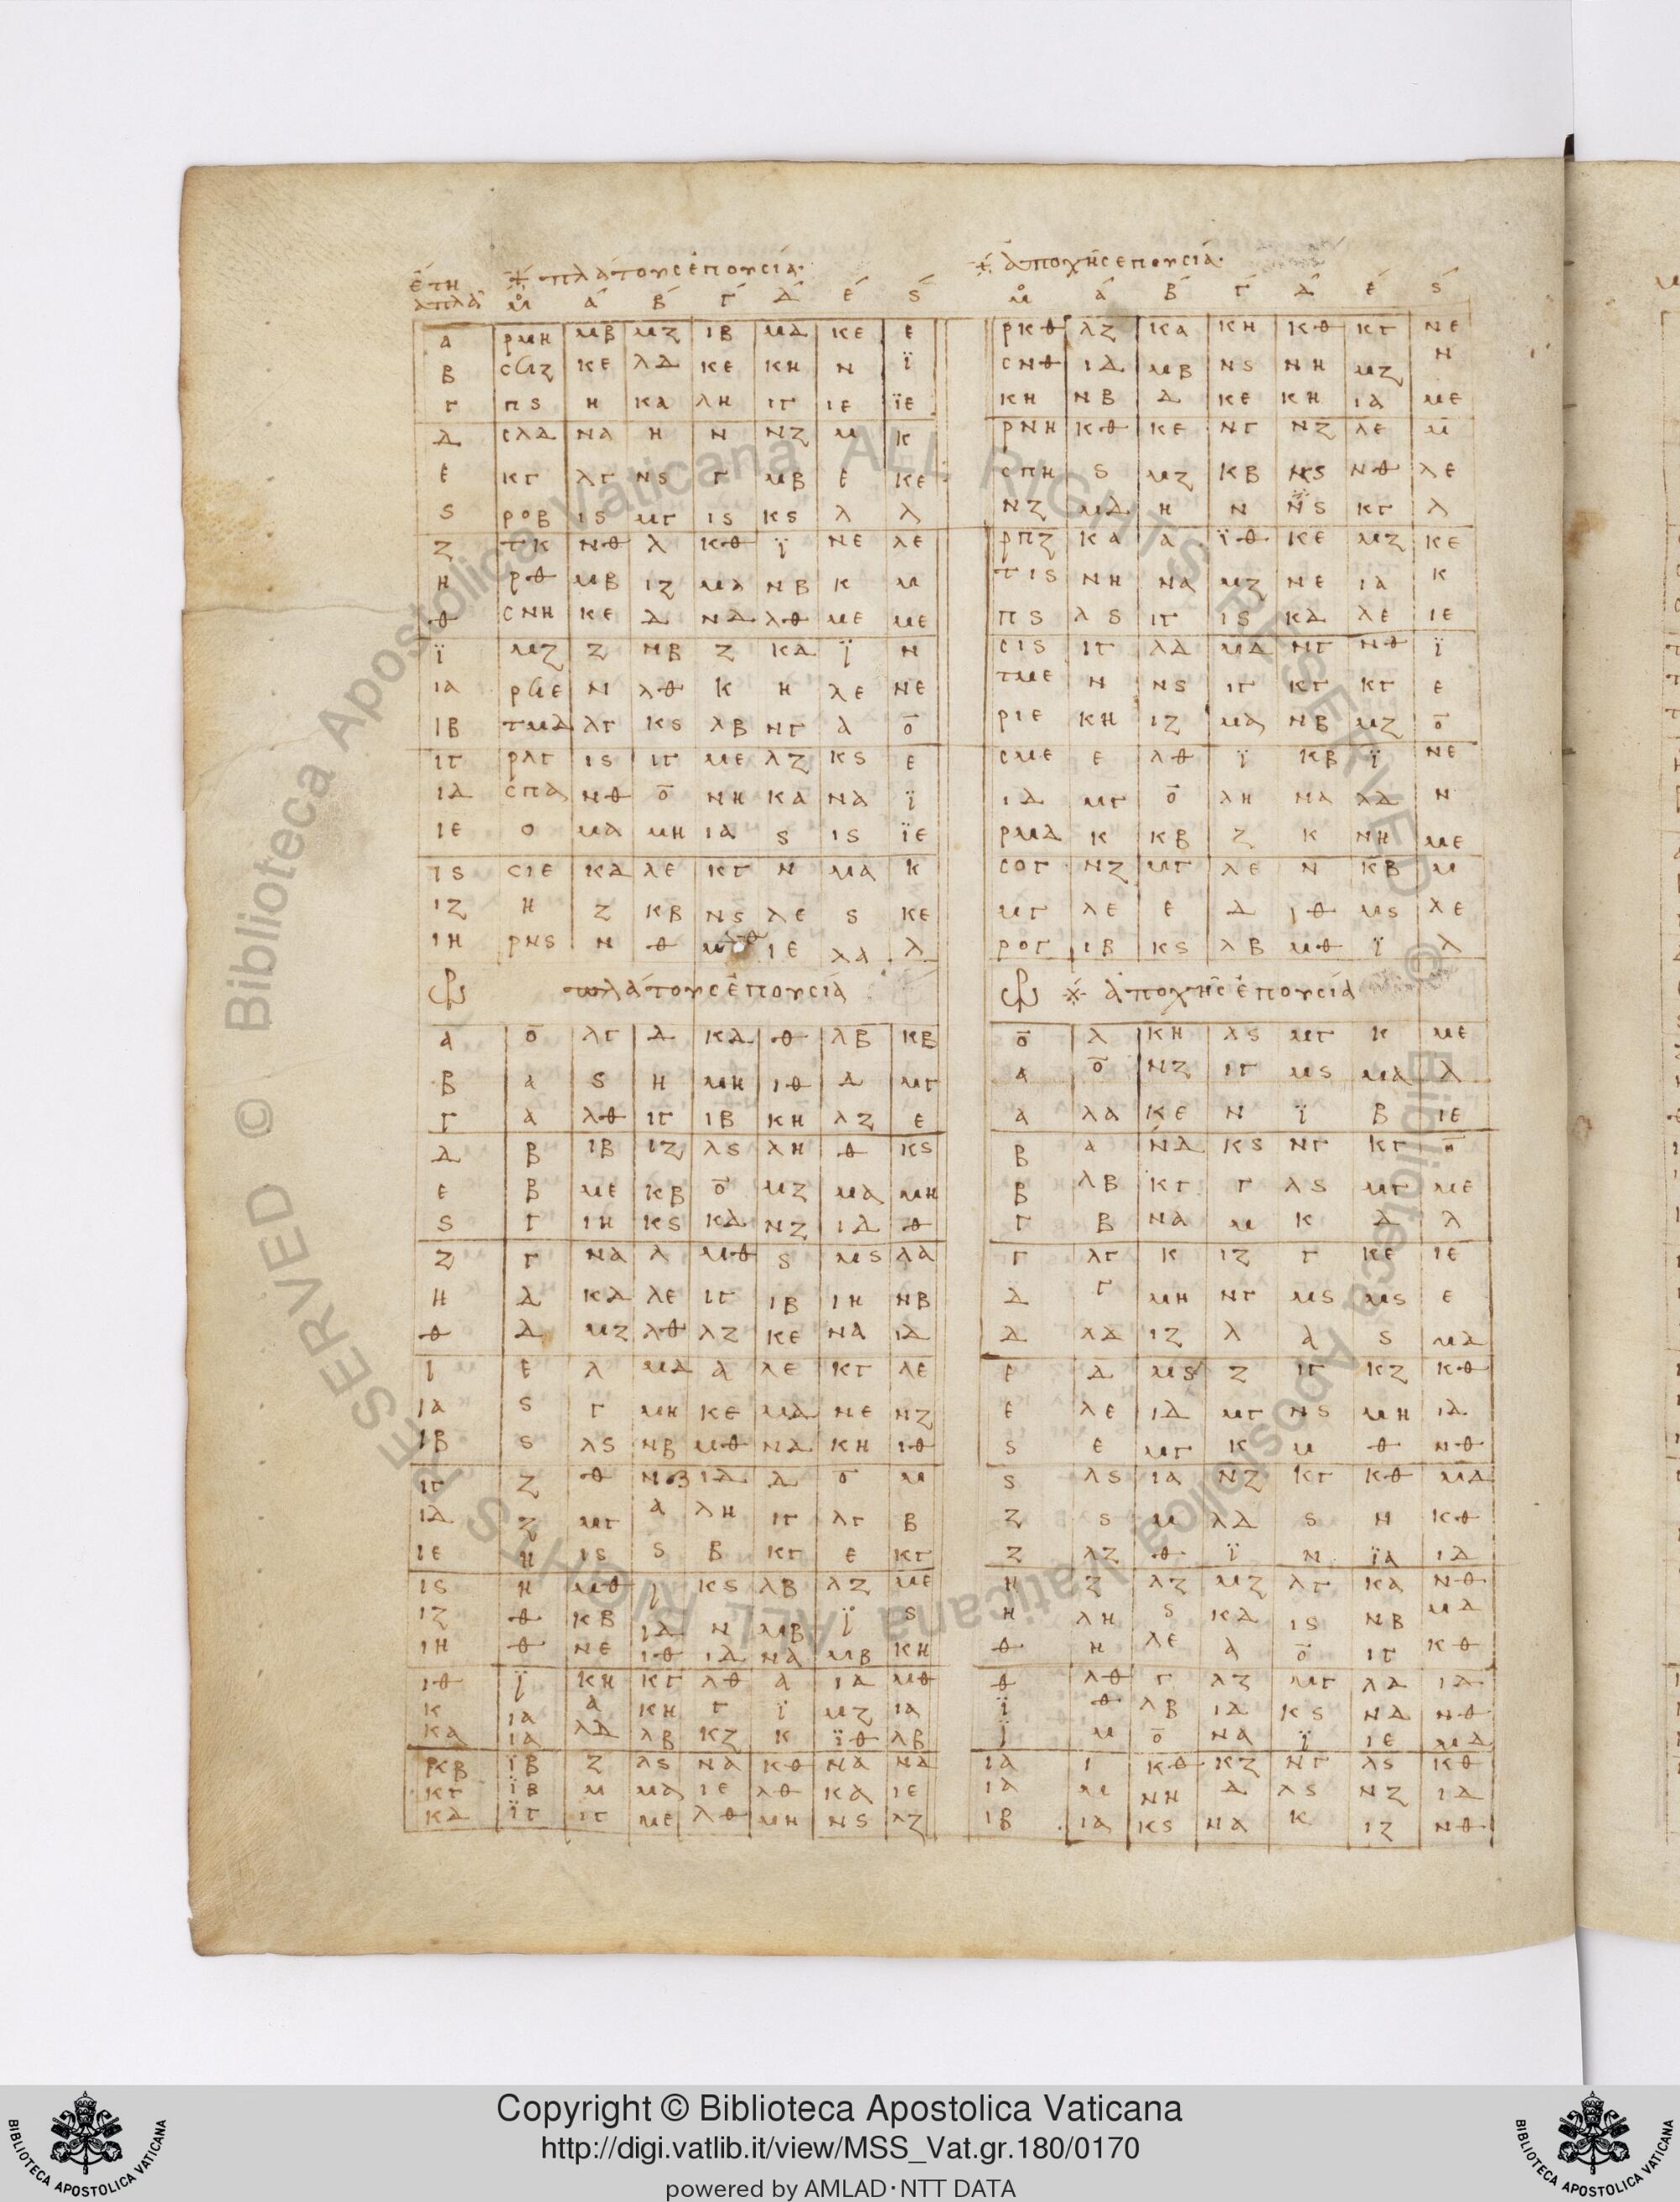 ἔτη ※ πλάτους ἐπουσία· ※ ἀποχῆς ἐπουσία·
ἁπλᾶ μο α β γ δ ε ς μο α β γ δ ε ς
α ρμη μβ μζ ιβ μδ κε ε ρκθ λζ κα κη κθ κγ νε
β σϟζ κε λδ κε κη ν ϊ σνθ ιδ μβ νς νη μζ ν
γ πς η κα λη ιγ ιε ϊε κη νβ δ κε κη ια με
δ σλδ να η ν νζ μ κ ρνη κθ κε νγ νζ λε μ
ε κγ λγ νς γ μβ ε κε σπη ς μζ κβ νς νθ λε
ς ροβ ις μγ ις κς λ λ νζ μδ η ν νς κγ λ
ζ τκ νθ λ κθ ϊ νε λε ρπζ κα α ϊθ κε μζ κε
η ρθ μβ ιζ μα νβ κ μ τις νη να μζ νε ια κ
θ σνη κε δ νδ λθ με με πς λς ιγ ις κδ λε ιε
ϊ μζ ζ νβ ζ κδ ϊ ν σις ιγ λδ μδ νγ νθ ϊ
ια ρϟε ν λθ κ η λε νε τμε ν νς ιγ κγ κγ ε
ιβ τμδ λγ κς λβ νγ α ο ριε κη ιζ μα νβ μζ ο
ιγ ρλγ ις ιγ με λζ κς ε σμε ε λθ ϊ κβ ϊ νε
ιδ σπα νθ ο νη κα να ϊ ιδ μγ ο λη να λδ ν
ιε ο μα μη ια ς ις ϊε ρμδ κ κβ ζ κ νη με
ις σιε κδ λε κγ ν μα κ σογ νζ μγ λε ν κβ μ
ιζ η ζ κβ νς λε ς κε μγ λε ε δ ιθ μς λε
ιη ρνς ν θ ιε λα λ ρογ ιβ κς λβ μθ ϊ λ
πλάτους ἐπουσία ※ ἀποχῆς ἐπουσία
α ο λγ δ κδ θ λβ κβ ο λ κη λς μγ κ με
β α ς η μη ιθ δ μγ α ο νζ ιγ μς μα λ
γ α λθ ιγ ιβ κη λζ ε α λα κε ν ϊ β ιε
δ β ιβ ιζ λς λη θ κς β α νδ κς νγ κγ ο
ε β με κβ ο μζ μα μη β λβ κγ γ λς μγ με
ς γ ιη κς κδ νζ ιδ θ γ β να μ κ δ λ
ζ γ να λ μθ ς μς λα γ λγ κ ιζ γ κε ιε
η δ κδ λε ιγ ιβ ιη νβ δ γ μη νγ μς μς ε
θ δ μζ λθ λζ κε να ιδ δ λδ ιζ λ α ς μδ
ι ε λ μδ α λε κγ λε ε δ μς ζ ιγ κζ κθ
ια ς γ μη κε μδ νε νζ ε λε ιδ μγ νς μη ιδ
ιβ ς λς νβ μθ νδ κη ιθ ς ε μγ κ μ θ νθ
ιγ ζ θ ιδ δ ο μ ς λς ια νζ κγ κθ μδ
ιδ ζ μγ α λη ιγ λγ β ζ ς μ λδ ς η κθ
ιε η ις ς β κγ ε κγ ζ λζ θ ϊ ν ϊα ιδ
ις η μθ ι κς λβ λζ με η ζ λζ μζ λγ κα νθ
ιζ θ κβ ιδ ν μβ ϊ ς η λη ς κδ ις νβ μδ
ιη θ νε ιθ ιδ να μβ κη θ η λε α ο ιγ κθ
ιθ ϊ κη κγ λθ α ιδ μθ θ λθ γ λζ μγ λδ ιδ
κ ια α κη γ ϊ μζ ια ϊ θ λβ ιδ κς νδ νθ
κα ια λδ λβ κζ κ ϊθ λβ ϊ μ ο να ϊ ιε μδ
κβ ϊβ ζ λς να κθ να νδ ια ι κθ κζ νγ λς κθ
κγ ϊβ μ μα ιε λθ κδ ιε ια μ νη δ λς νζ ιδ
κδ ϊγ ιγ με λθ μη νς λζ ιβ ια κς να κ ιζ νθ
© Biblioteca Apostolica Vaticana ALL RIGHTS RESERVED © Biblioteca Apostolica Vaticana ALL RIGHTS RESERVED
Copyright © Biblioteca Apostolica Vaticana
http://digi.vatlib.it/view/MSS_Vat.gr.180/0170
powered by AMLAD·NTT DATA
BIBLIOTECA APOSTOLICA VATICANA
BIBLIOTECA APOSTOLICA VATICANA